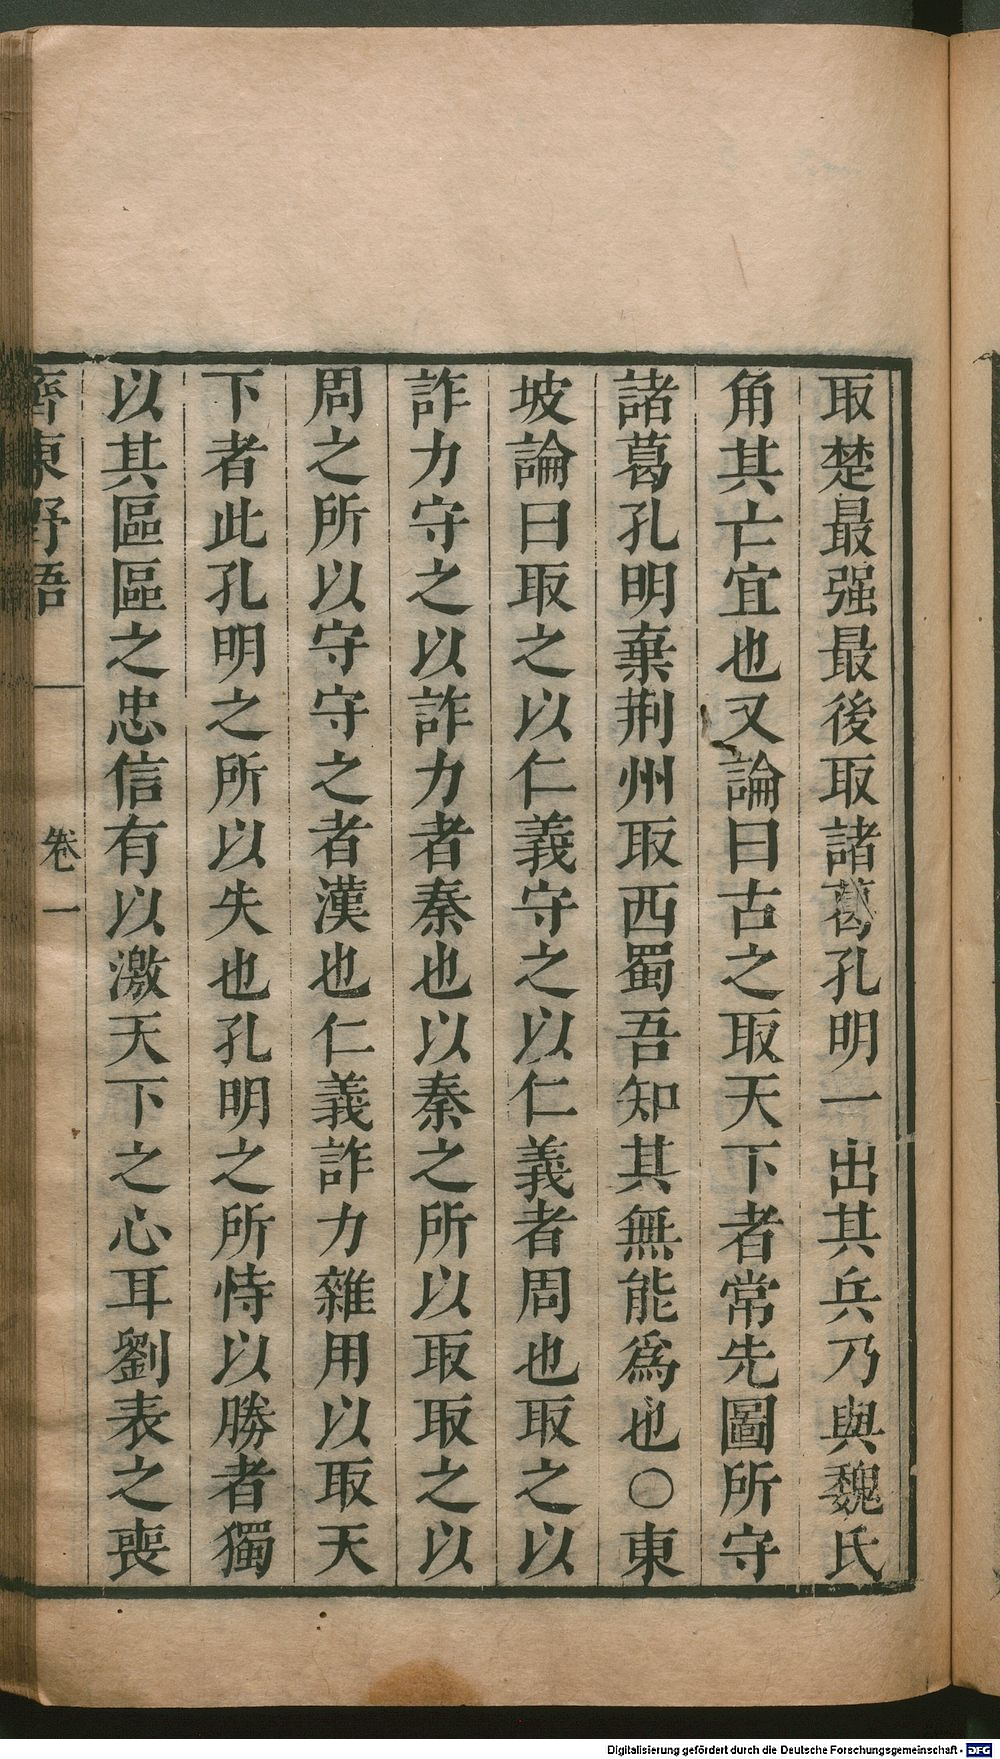 取楚最强最後取諸葛孔明一出其兵乃與魏氏
角其亡宜也又論曰古之取天下者常先圖所守
諸葛孔明棄荆州取西蜀吾知其無能爲也○東
坡論曰取之以仁義守之以仁義者周也取之以
詐力守之以詐力者秦也以秦之所以取取之以
周之所以守守之者漢也仁義詐力雜用以取天
下者此孔明之所以失也孔明之所恃以勝者獨
以其區區之忠信有以激天下之心耳劉表之喪
齊東野語
卷一
Digitalisierung gefördert durch die Deutsche Forschungsgemeinschaft - DFG